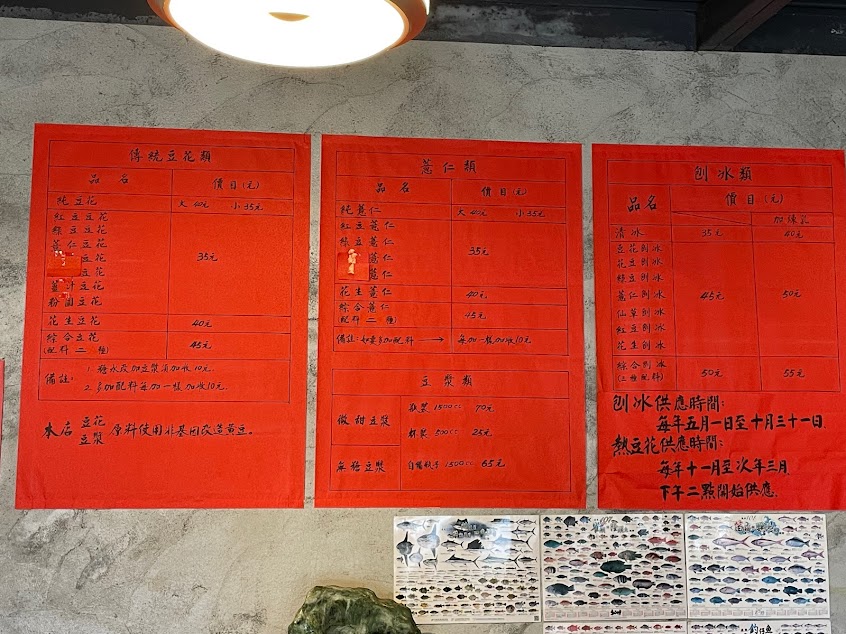 傳統豆花類
品名 價目(元)
純豆花 大40元 小35元
紅豆豆花
綠豆豆花
薏仁豆花
豆花
豆花
薑汁豆花
粉圓豆花
35元
花生豆花 40元
綜合豆花
(配料二種)
45元
備註:
1. 糖水改加豆漿須加收10元.
2. 多加配料每加一樣加收10元.
本店 豆花 豆漿 原料使用非基因改造黃豆。
薏仁類
品名 價目(元)
純薏仁 大40元 小35元
紅豆薏仁
綠豆薏仁
薏仁
薏仁
35元
花生薏仁 40元
綜合薏仁
(配料二種)
45元
備註:如要多加配料 → 每加一樣加收10元.
豆漿類
微甜豆漿
瓶裝1500cc 70元
杯裝500cc 25元
無糖豆漿 自備瓶子1500cc 65元
刨冰類
品名 價目(元)
加煉乳
清冰 35元 40元
豆花刨冰
花豆刨冰
綠豆刨冰
薏仁刨冰
仙草刨冰
紅豆刨冰
花生刨冰
45元 50元
綜合刨冰
(三種配料)
50元 55元
刨冰供應時間:
每年五月一日至十月三十一日
熱豆花供應時間:
每年十一月至次年三月
下午二點開始供應.
釣仔魚